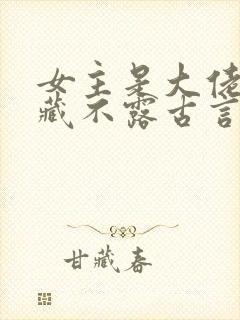 女主是大佬
藏不露古言
甘藏春